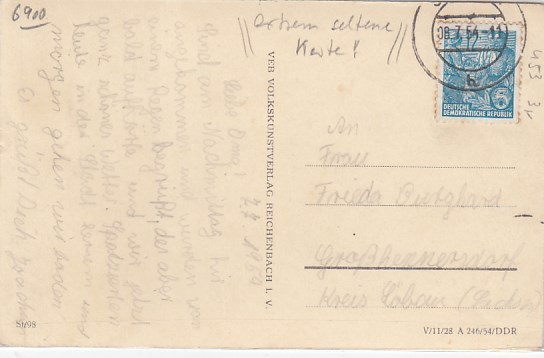 6900.
extrem seltene
Karte!
08.7.54-11
DEUTSCHE
DEMOKRATISCHE REPUBLIK
5
453 3.-
VEB VOLKSKUNSTVERLAG REICHENBACH I. V.
7.7.1954
Liebe Oma!
sind am Nachmittag hir
wurden vom
einem Regen begrüßt, der aber
bald aufhörte und wir gleich
ganz schönes Wetter.
heute in der Stadt und
morgen gehen wir baden
Es grüßt Dich
An
Frau
Frieda Burghard
Großhennersdorf
Kreis Löbau (Sachsen)
St/98
V/11/28 A 246/54/DDR